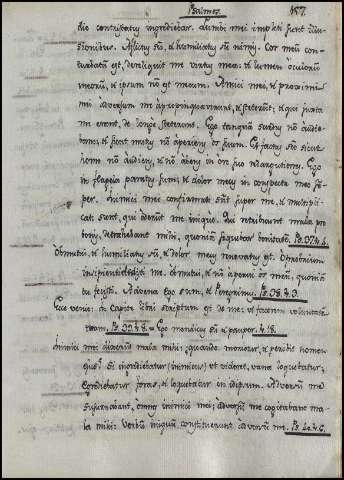 Psalmos. 157.
die contristatus ingrediebar. Lumbi mei impleti sunt illu-
sionibus. Afflictus sū, & humiliatus sū nimis. Cor meū con-
turbatum est, dereliquit me virtus mea: & lumen oculorum
meorum, & ipsum nō est mecum. Amici mei, & proximi
mei adversum me apropinquaverunt, & steterunt: & qui juxta
me erant, de longe steterunt. Ego tanquā surdus nō audie-
bam; & sicut mutus nō aperiens os suum. Et factus sū sicut
homo nō audiens, & nō habens in ore suo redargutiones. Ego
in flagella paratus sum; & dolor meus in conspectu meo sē-
per. Inimici mei confirmati sunt super me, & multipli-
cati sunt, qui oderunt me inique. Qui retribuunt mala pro
bonis, detrahebant mihi, quoniā sequebar bonitatē. Ps. 37.
Obmutui, & humiliatus sū, & dolor meus renovatus est. Opprobrium
insipienti dedisti me. Obmutui, & nō aperui os meū, quoniā
tu fecisti. Advena ego sum, & Peregrinus. Ps. 38.
Ecce venio: in capite libri scriptum est de me: ut facerem voluntatē
tuam. Ps. 39. = Ego mendicus sū & pauper. 4.18.
Inimici mei dixerunt mala mihi; quando morietur, & peribit nomen
ejus? Si ingrediebatur (inimicus) ut videret, vana loquebatur;
Egrediebatur foras, & loquebatur in idipsum. Adversus me
susurrabant, omnes inimici mei; adversus me cogitabant ma-
la mihi: Verbū iniquū constituerunt adversū me. Ps. 40.